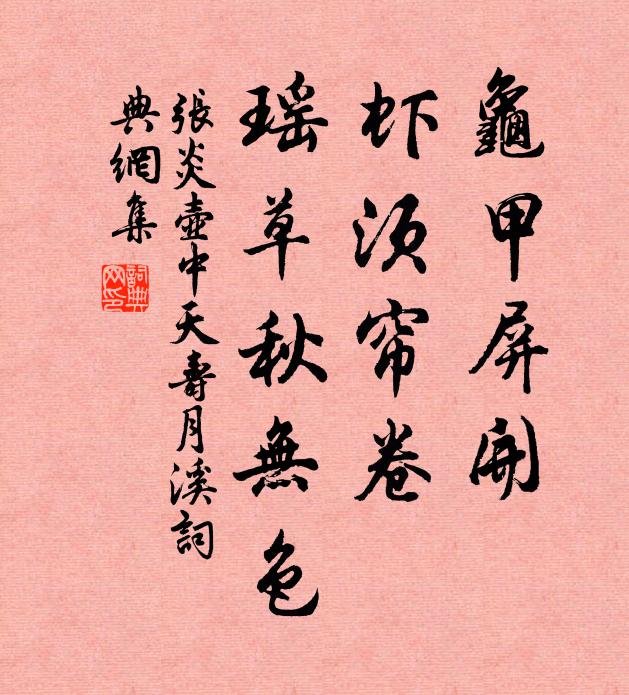 龜甲屏開
虾须帘卷
瑶草秋無色
張炎壺中天壽月溪詞
典網集
詞典網印